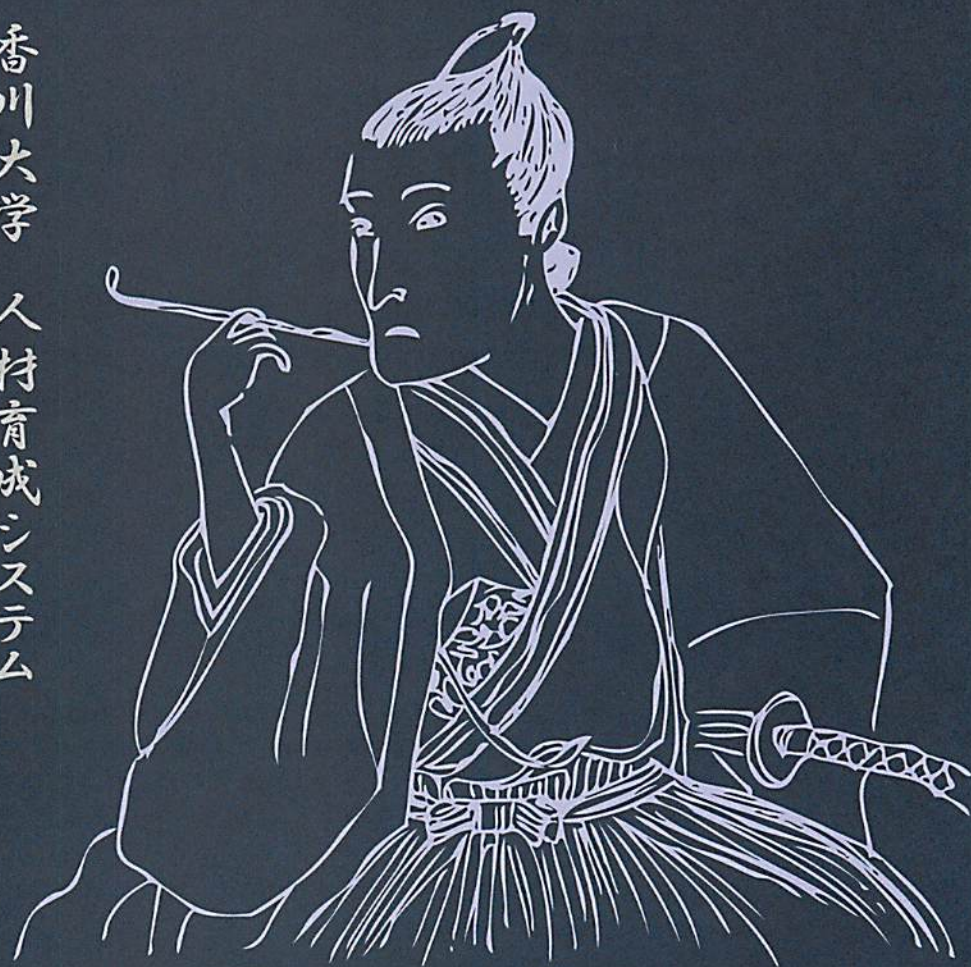 香川大学 人材育成システム